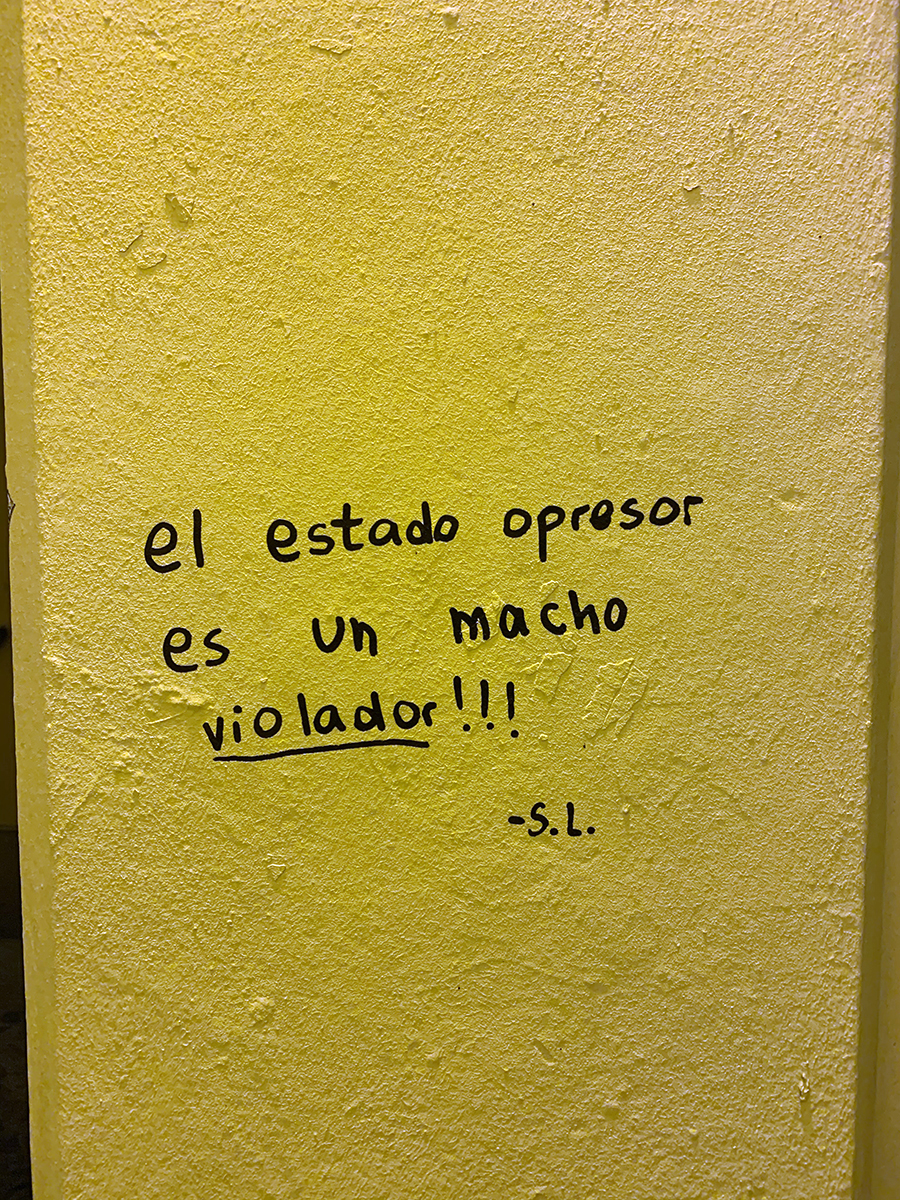 el estado opresor
es un macho
violador!!!
-S.L.